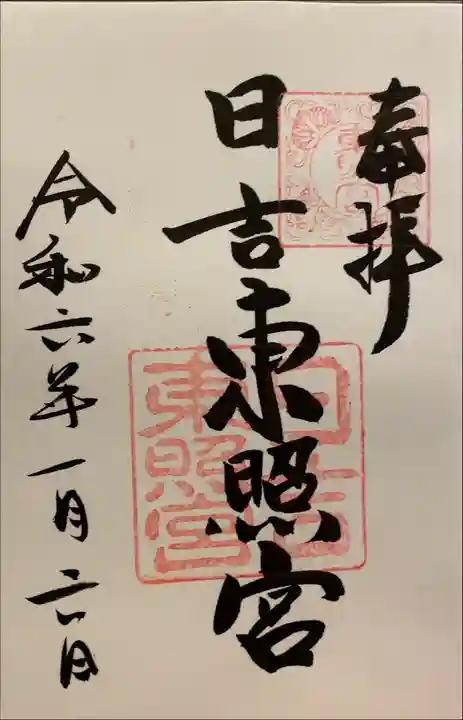 奉拝
日吉東照宮
令和六年一月二六日
日吉
東照宮